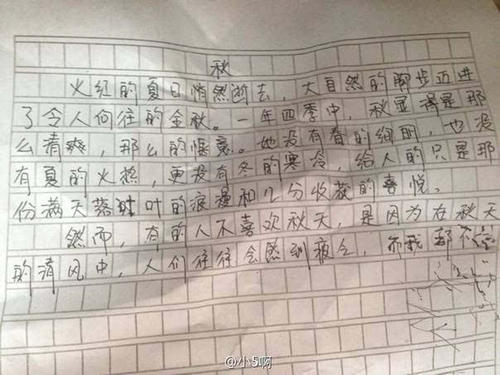 秋
火红的夏日悄然逝去，大自然的脚步迈进
了令人向往的金秋。一年四季中，秋显得是那
么清爽，那么的惬意。她没有春的绚丽，也没
有夏的火热，更没有冬的寒冷，给人的只是那
份满天落叶的浪漫和几分收获的喜悦。
然而，有的人不喜欢秋天，是因为在秋天
的清风中，人们往往会感到疲乏，而我却不
@小5啊